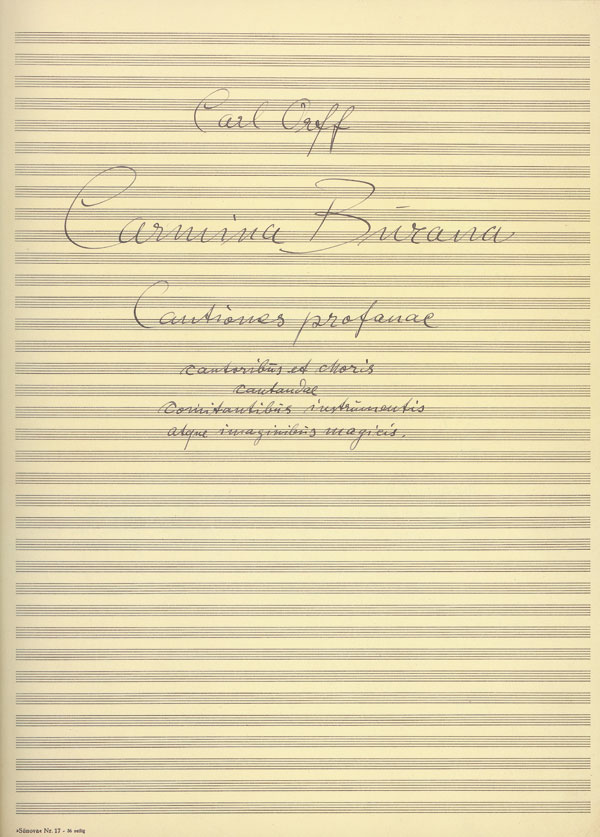 Carl Orff
Carmina Burana
Cantiones profanae
cantoribus et choris
cantandae
comitantibus instrumentis
atque imaginibus magicis.
»Sünova« Nr. 17 - 36 zeilig